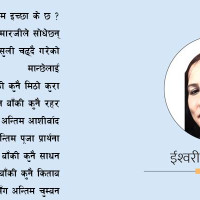 म इच्छा के छ ?
मारजीले सोधेछन्
सुली चढ्दै गरेको
मान्छेलाई
की कुनै मिठो कुरा
न बाँकी कुनै रहर
अन्तिम आशीर्वाद
अन्तिम पूजा प्रार्थना
बाँकी कुनै साधन
बाँकी कुनै किताब
अन्तिम चुम्बन
ईश्वरी